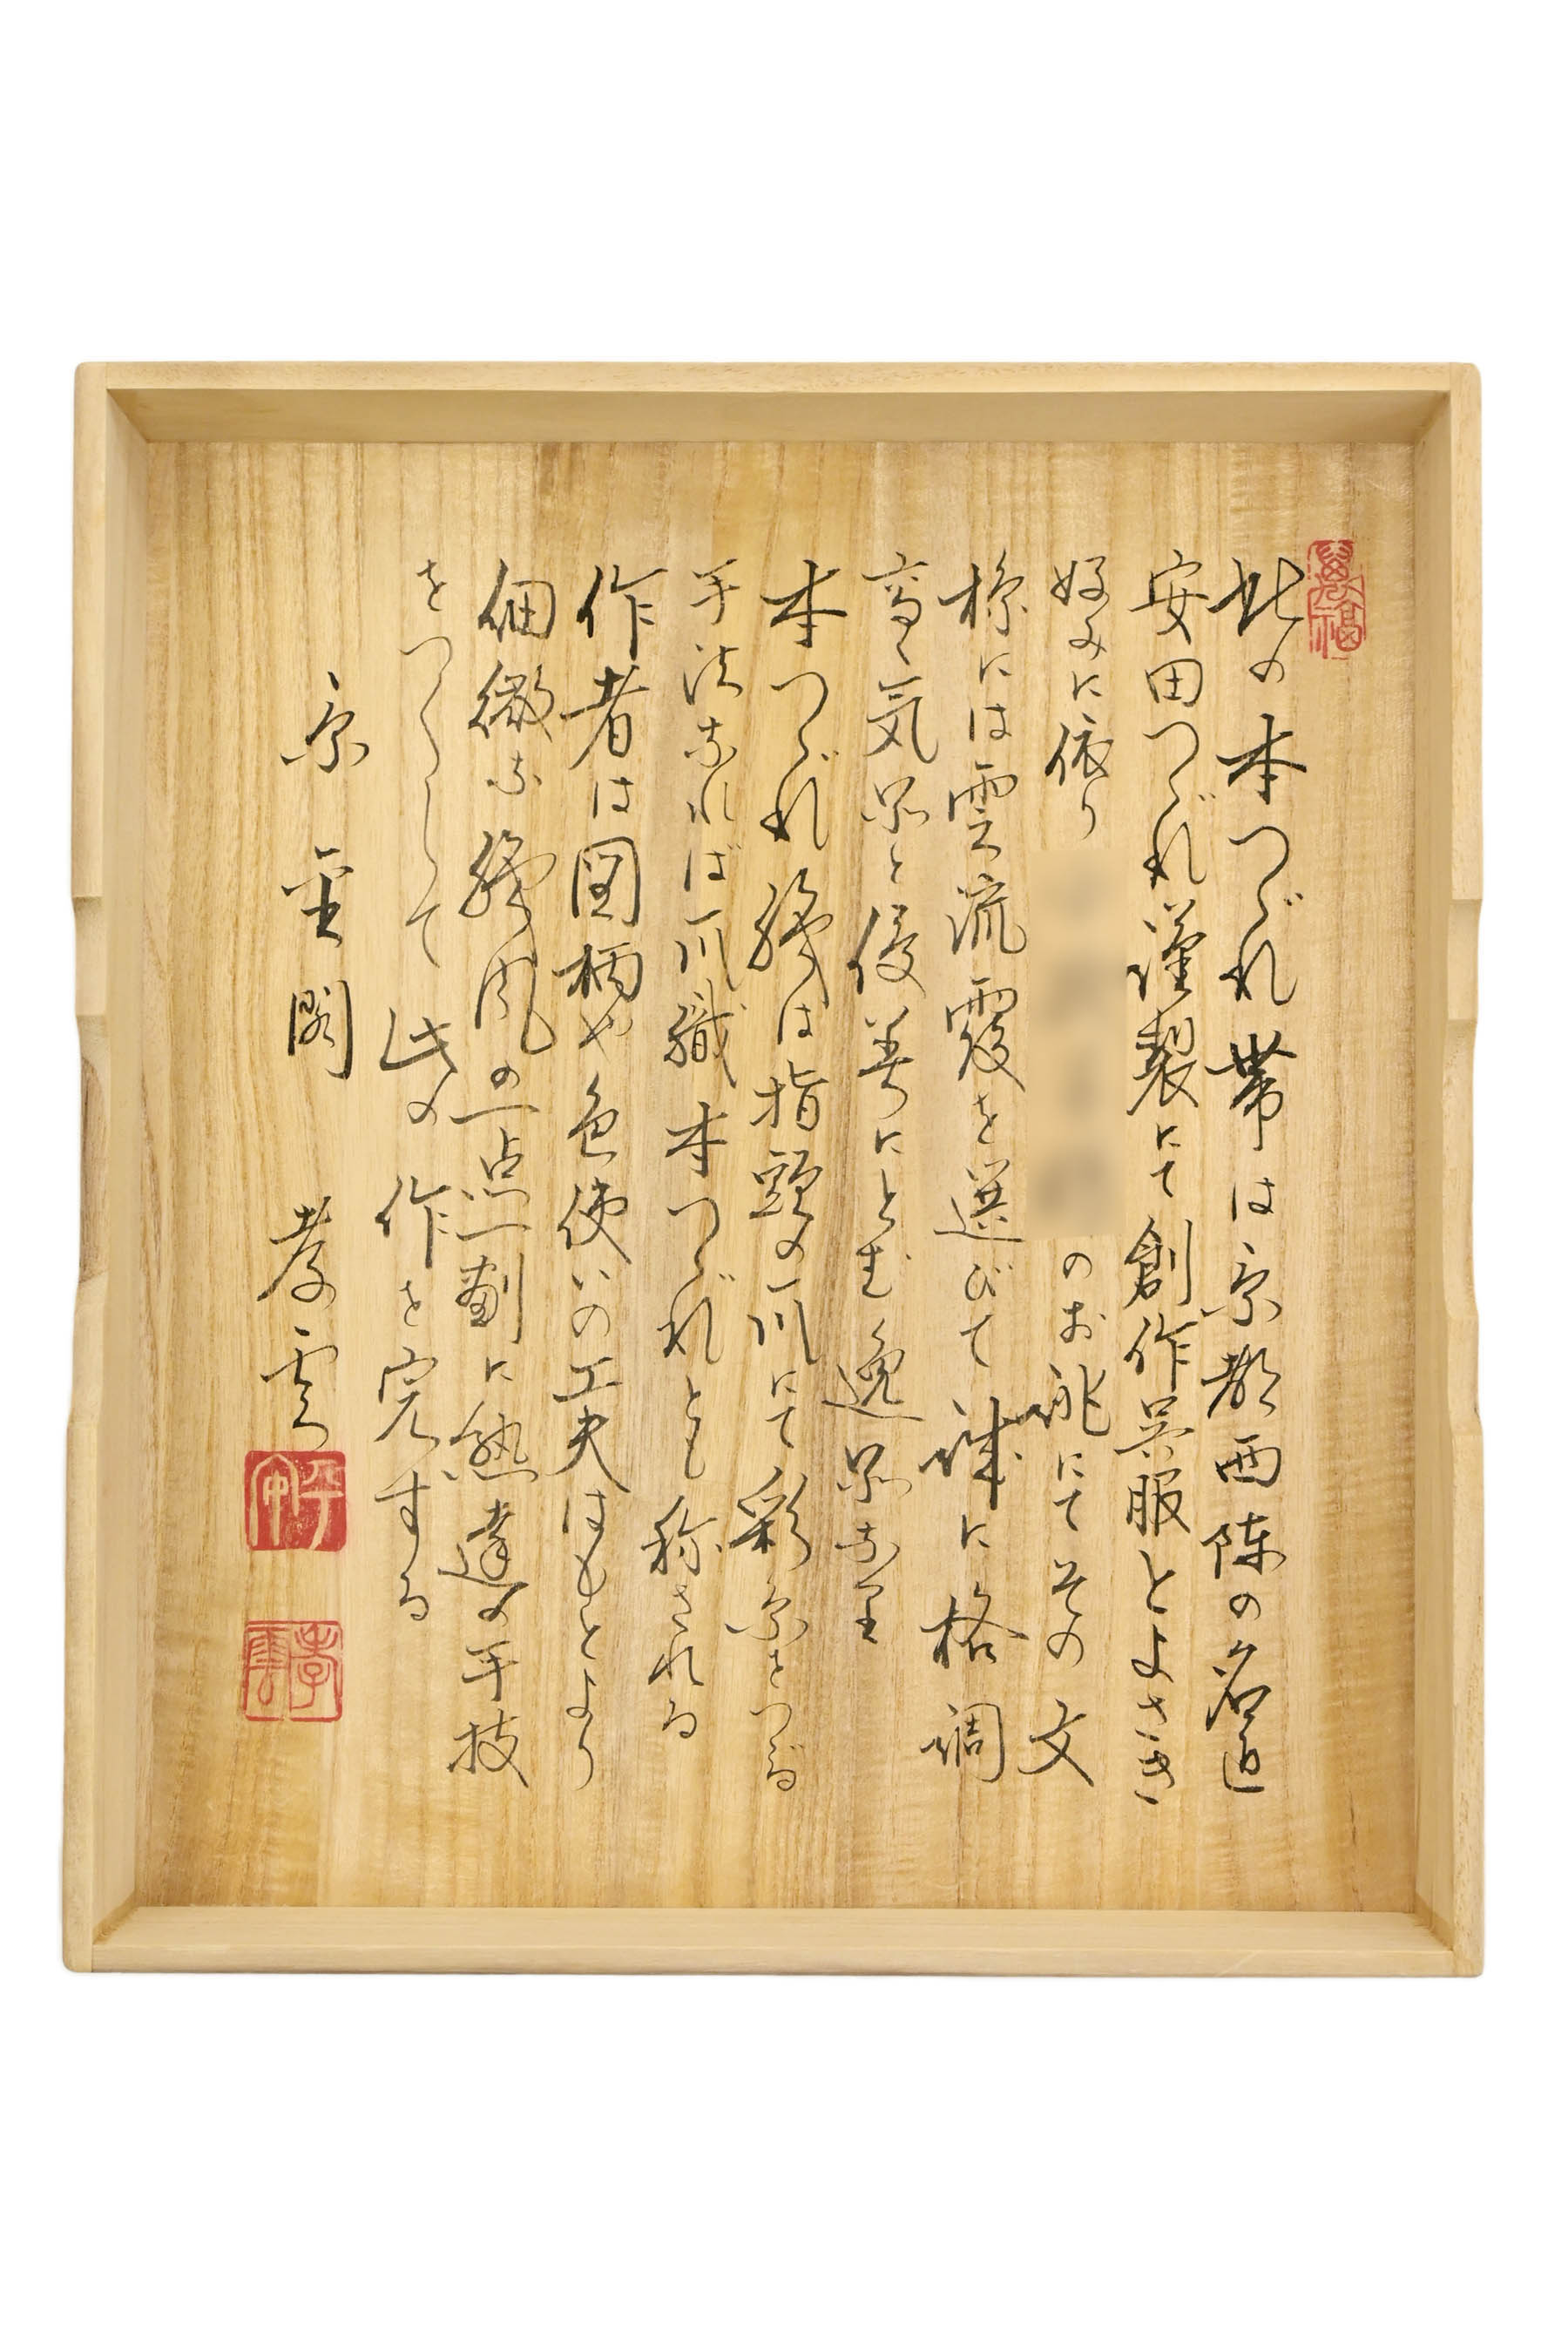 萬福
此の本つゞれ帯は京都西陣の名匠
安田つゞれ謹製にて創作呉服とよさき
好みに依り
のお誂にてその文
様には雲流霞を選びて誠に格調
高く気品と優美にとむ逸品なり
本つゞれ織は指頭の爪にて彩糸をつゞる
手法なれば爪織本つゞれとも称される
作者は図柄や色使いの工夫はもとより
細微な織風の一点一劃に熟達の手技
をつくして此の作を完ずる
京平閣 孝雲
孝雲